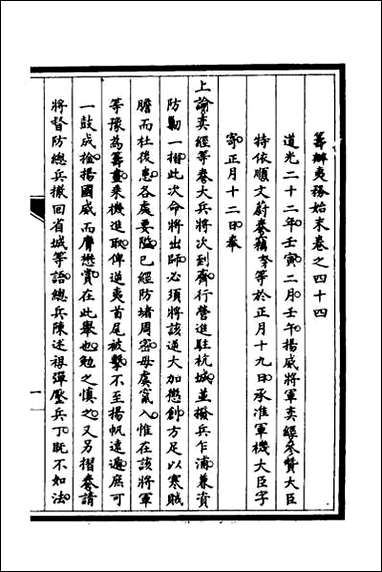 籌辦夷務始末卷之四十四
道光二十二年壬寅二月壬午揚威將軍奕經參贊大臣
特依順文蔚奏竊李等於正月十九日承准軍機大臣字
寄正月十二日奉
上諭奕經等奏大兵將次到齊行營進駐杭城並撥兵乍浦兼資
防勦一摺此次命將出師必須將該逆大加懲創方足以寒賊
膽而杜後患各處要隘已經防堵周密毋虞竄入惟在該將軍
等豫為籌畫乘機進取俾逆夷首尾被擊不至揚帆遠遁庶可
一鼓成擒揚國威而膺懋賞在此舉也勉之慎之又另摺奏請
將督防總兵撤回省城等語總兵陳述祖彈壓兵丁既不如法